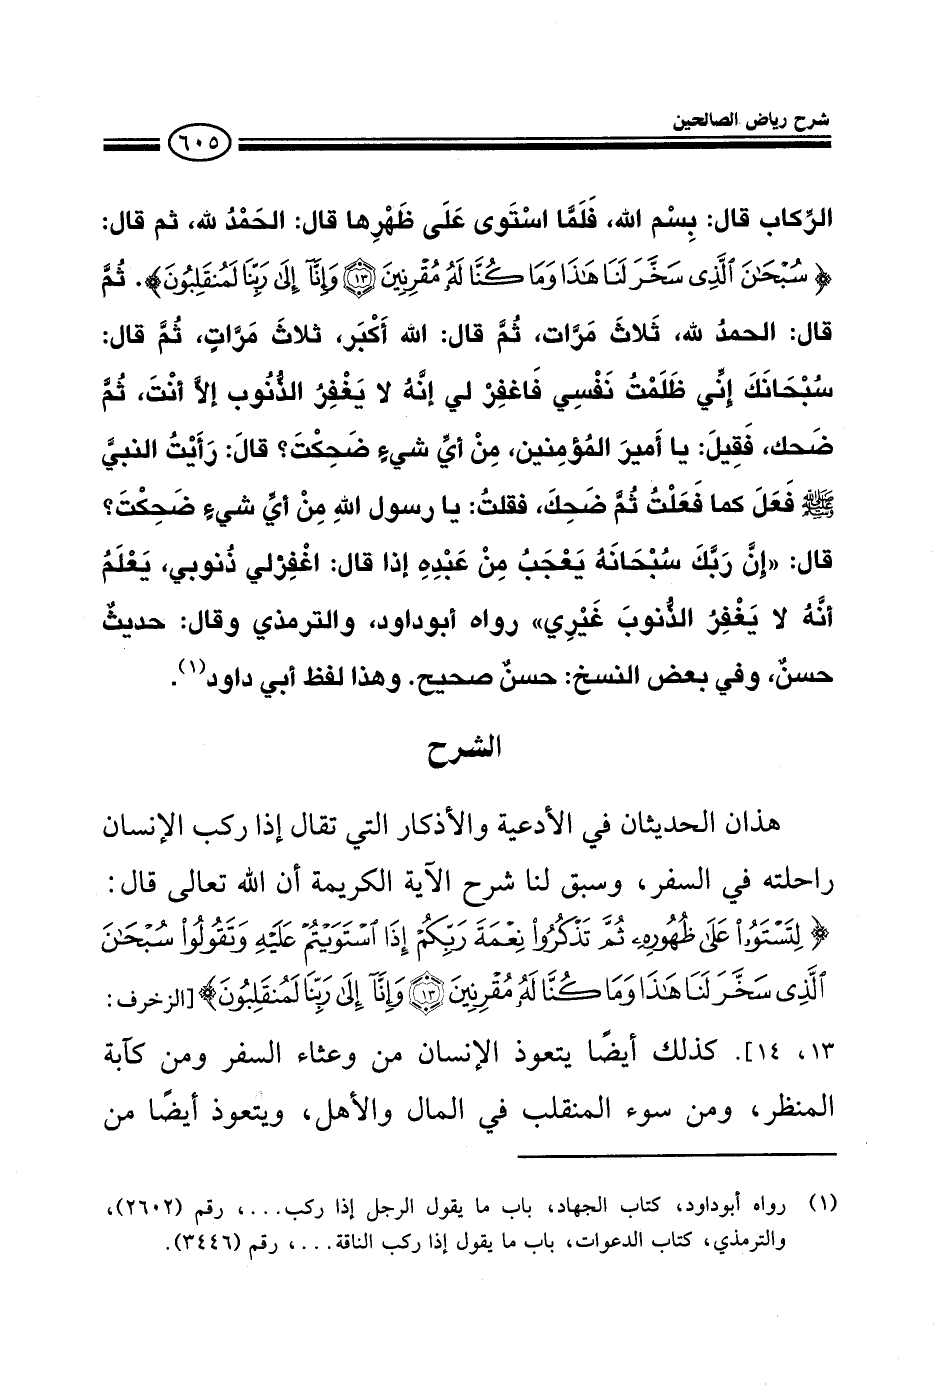 شرح رياض الصالحين
٦٠٥
الرِّكاب قال: بِسْمِ الله، فَلَمَّا اسْتَوى عَلَى ظَهْرِها قال: الحَمْدُ لله، ثم قال:
﴿ سُبْحَٰنَ ٱلَّذِى سَخَّرَ لَنَا هَٰذَا وَمَا كُنَّا لَهُۥ مُقْرِنِينَ ١٣ وَإِنَّآ إِلَىٰ رَبِّنَا لَمُنقَلِبُونَ﴾. ثُمَّ
قال: الحمدُ لله، ثَلاثَ مَرَّات، ثُمَّ قال: الله أَكْبَر، ثلاثَ مَرَّاتٍ، ثُمَّ قال:
سُبْحَانَكَ إِنِّي ظَلَمْتُ نَفْسِي فَاغفِرْ لي إنَّهُ لا يَغْفِرُ الذُّنُوب إلاَّ أنْتَ، ثُمَّ
ضَحك، فَقِيلَ: يا أميرَ المُؤمِنين، مِنْ أيِّ شيءٍ ضَحِكْتَ؟ قالَ: رَأيْتُ النبيَّ
ﷺ فَعَلَ كما فَعَلْتُ ثُمَّ ضَحِكَ، فقلتُ: يا رسول اللهِ مِنْ أيِّ شيءٍ ضَحِكْتَ؟
قال: «إنَّ رَبَّكَ سُبْحَانَهُ يَعْجَبُ مِنْ عَبْدِهِ إذا قال: اغْفِرْلي ذُنوبي، يَعْلَمُ
أنَّهُ لا يَغْفِرُ الذُّنوبَ غَيْرِي» رواه أبوداود، والترمذي وقال: حديثٌ
حسنٌ، وفي بعض النسخ: حسنٌ صحيح. وهذا لفظ أبي داود(١).
الشرح
هذان الحديثان في الأدعية والأذكار التي تقال إذا ركب الإنسان
راحلته في السفر، وسبق لنا شرح الآية الكريمة أن الله تعالى قال:
﴿ لِتَسْتَوُۥا۟ عَلَىٰ ظُهُورِهِۦ ثُمَّ تَذْكُرُوا۟ نِعْمَةَ رَبِّكُمْ إِذَا ٱسْتَوَيْتُمْ عَلَيْهِ وَتَقُولُوا۟ سُبْحَٰنَ
ٱلَّذِى سَخَّرَ لَنَا هَٰذَا وَمَا كُنَّا لَهُۥ مُقْرِنِينَ ١٣ وَإِنَّآ إِلَىٰ رَبِّنَا لَمُنقَلِبُونَ﴾ [الزخرف:
١٣، ١٤]. كذلك أيضًا يتعوذ الإنسان من وعثاء السفر ومن كآبة
المنظر، ومن سوء المنقلب في المال والأهل، ويتعوذ أيضًا من
(١) رواه أبوداود، كتاب الجهاد، باب ما يقول الرجل إذا ركب...، رقم (٢٦٠٢)،
والترمذي، كتاب الدعوات، باب ما يقول إذا ركب الناقة...، رقم (٣٤٤٦).